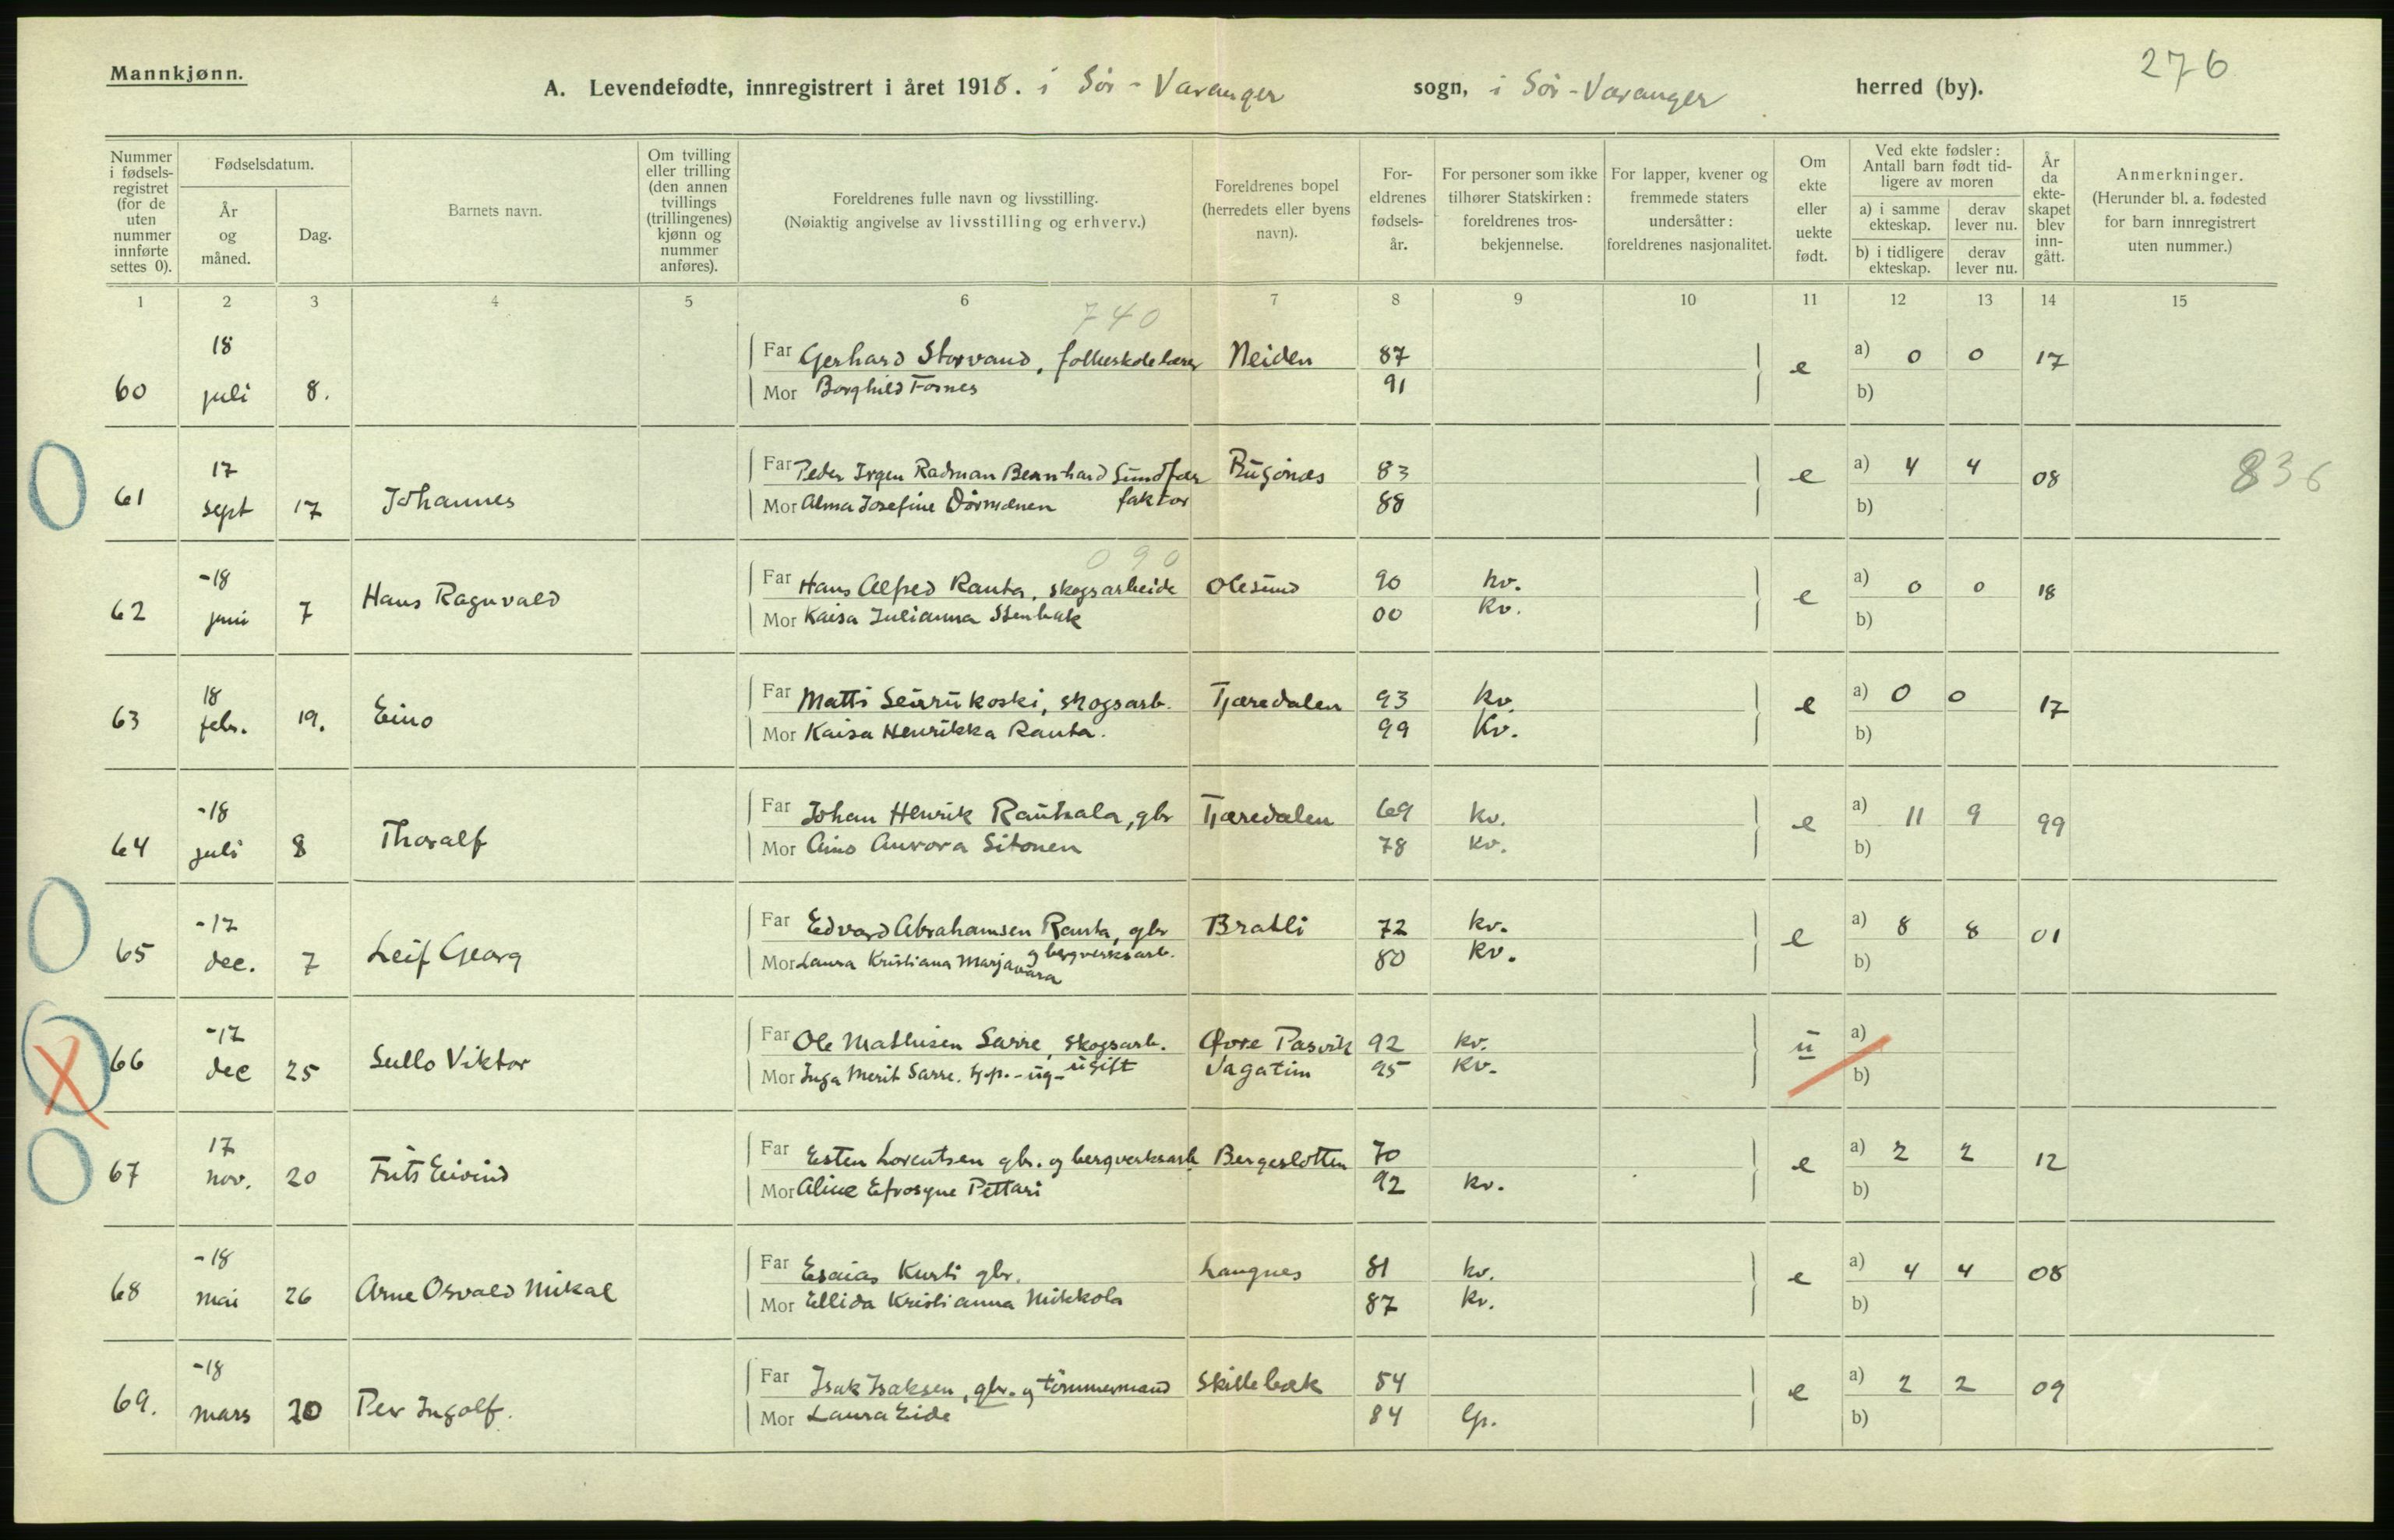 276
Mannkjønn.
A. Levendefødte, innregistrert i året 1918. i Sör-Varanger sogn, i Sör-Varanger herred (by).
Nummer i fødsels-registret (for de uten nummer innførte settes 0).
Fødselsdatum.
År og måned.
Dag.
Barnets navn.
Om tvilling eller trilling (den annen tvillings (trillingenes) kjønn og nummer anføres).
Foreldrenes fulle navn og livsstilling.
(Nøiaktig angivelse av livsstilling og erhverv.)
Foreldrenes bopel (herredets eller byens navn).
For-eldrenes fødsels-år.
For personer som ikke tilhører Statskirken: foreldrenes tros-bekjennelse.
For lapper, kvener og fremmede staters undersåtter: foreldrenes nasjonalitet.
Om ekte eller uekte født.
Ved ekte fødsler: Antall barn født tid-ligere av moren
a) i samme ekteskap.
derav lever nu.
b) i tidligere ekteskap.
derav lever nu.
År da ekte-skapet blev inn-gått.
Anmerkninger.
(Herunder bl. a. fødested for barn innregistrert uten nummer.)
1 2 3 4 5 6 7 8 9 10 11 12 13 14 15
740
60 18 juli 8.
Far Gerhard Storvand, folkeskolelærer Neiden 87 e a) 0 0 17
Mor Borghild Fosnes 91 b)
61 17 sept 17 Johannes
Far Peder Irgen Radman Bernhard Sundfær Bugönæs 83 e a) 4 4 08 836
Mor Alma Josefine Dörmænen faktor 88 b)
090
62 -18 juni 7 Hans Ragnvald
Far Hans Alfred Ranta, skogsarbeide Olesund 90 kv. e a) 0 0 18
Mor Kaisa Julianna Stenbak 00 kv. b)
63 18 febr. 19. Eino
Far Matti Seurukoski, skogsarb. Tjæredalen 93 kv. e a) 0 0 17
Mor Kaisa Henrikka Ranta. 99 kv. b)
64 -18 juli 8 Thoralf
Far Johan Henrik Rautiala, gbr Tjæredalen 69 kv. e a) 11 9 99
Mor Aino Aurora Sitonen 78 kv. b)
65 -17 dec. 7 Leif Georg
Far Edvard Abrahamsen Ranta, gbr Bratli 72 kv. e a) 8 8 01
og bergverksarb.
Mor Laura Kristiana Marjavara 80 kv. b)
66 -17 dec 25 Sullo Viktor
Far Ole Mathisen Sarre, skogsarb. Øvre Pasvik 92 kv. u a)
Mor Inga Merit Sarre. tj.p. - ug- ugift Vagatim 95 kv. b)
67 17 nov. 20 Frits Eivind
Far Esten Lorentsen gbr. og bergverksarb Bergeslotten 70 e a) 2 2 12
Mor Aline Efrosyne Pettari 92 kv. b)
68 -18 mai 26 Arne Osvald Mikal
Far Esaias Kurti gbr. Langnes 81 kv. e a) 4 4 08
Mor Ellida Kristianna Mikkola 87 kv. b)
69. -18 mars 20 Per Ingolf.
Far Isak Isaksen, gbr. og tömmermand Skillebæk 84 e a) 2 2 09
Mor Laura Eide 84 lp. b)